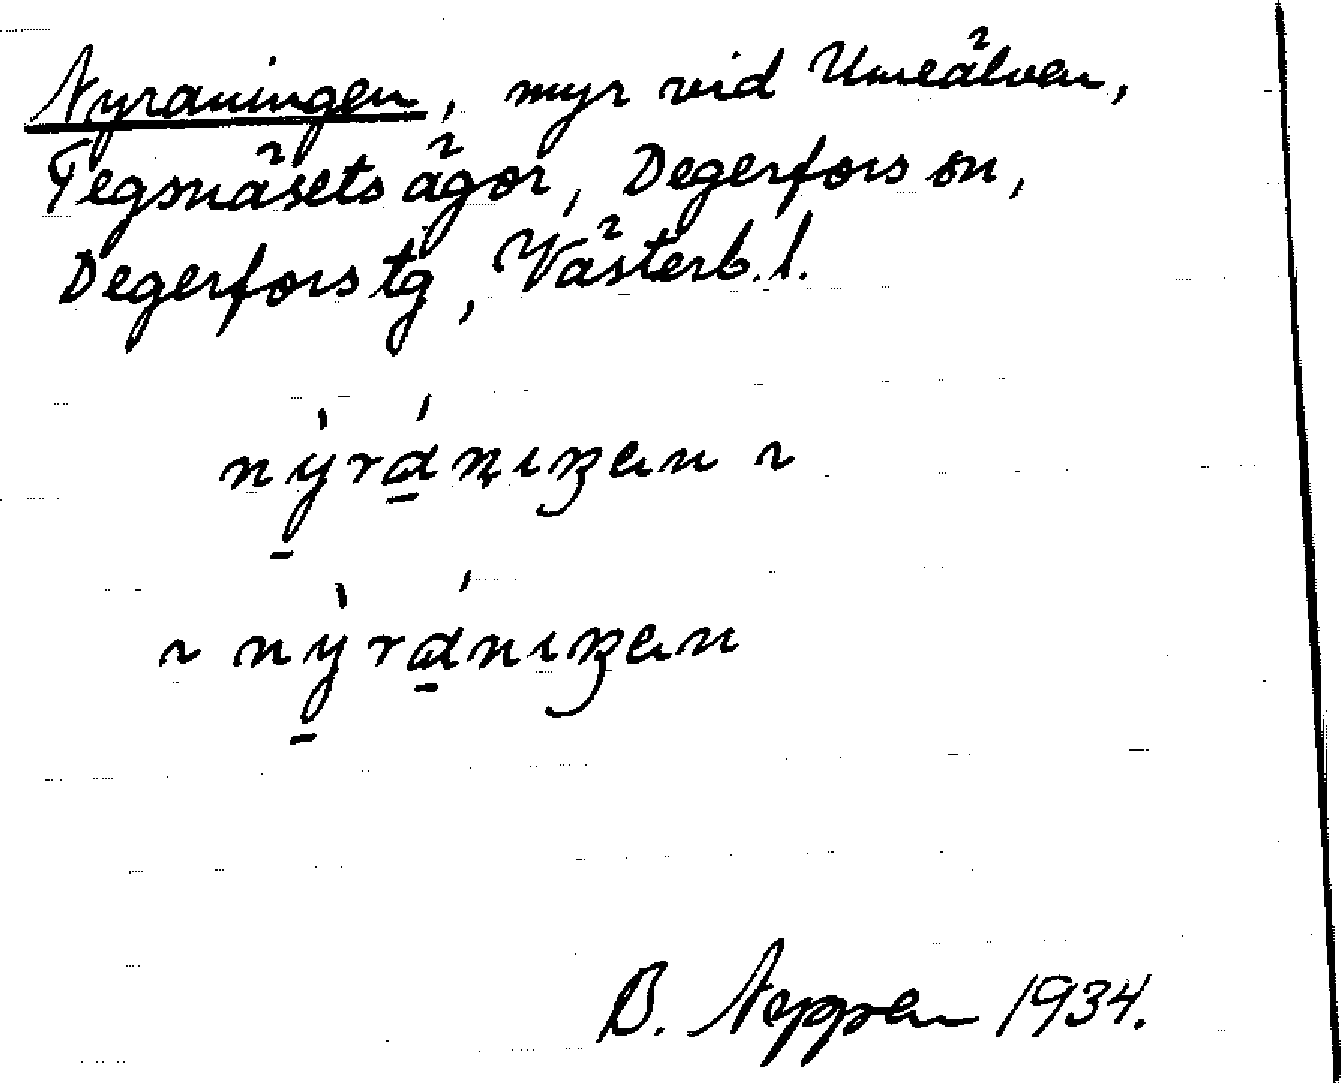 Nyråningen, myr vid Umeälven,
Tegsnäsets ägor, Degerfors sn,
Degerfors tg, Västerb. l.
nỳ̠rá̠nɩŋen ~
~ nỳ̠rá̠nɩŋen
B. Neppen 1934.